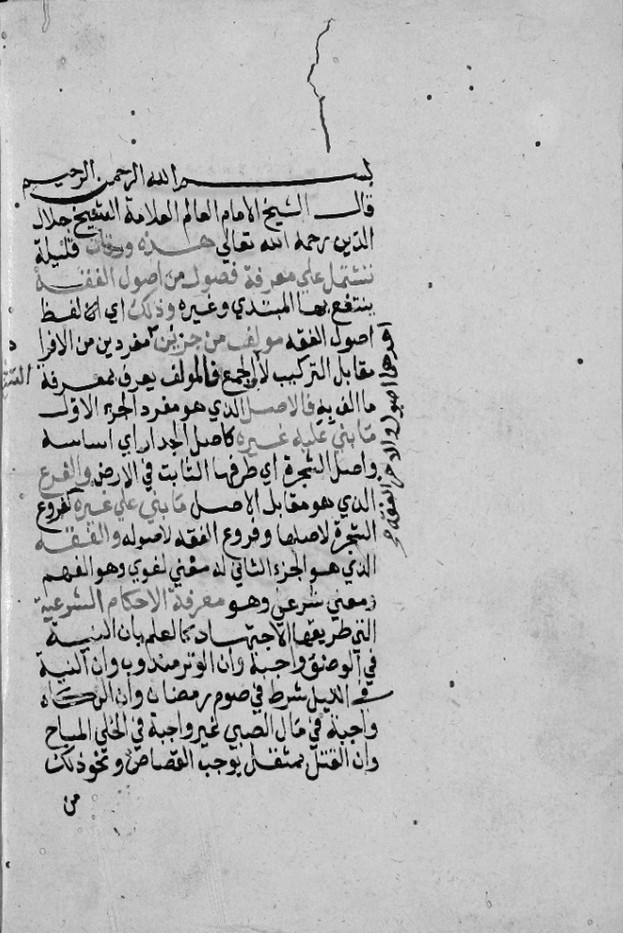 بسم الله الرحمن الرحيم
قال الشيخ الامام العالم العلامة الشيخ جلال
الدين رحمه الله تعالي هذه ورقات قليلة
تشتمل علي معرفة فصول من اصول الفقه
ينتفع بها المبتدي وغيره وذلك اي لفظ
اصول الفقه مولف من جزئين مفردين من الافرا
مقابل التركيب لا الجمع فالمولف يعرف بمعرفة
ما الف به فالاصل الذي هو مفرد الجزء الاول
ما بني عليه غيره كاصل الجدار اي اساسه
واصل الشجرة اي طرفها الثابت في الارض والفرع
الذي هو مقابل الاصل ما يبني علي غيره كفروع
الشجرة لاصلها وفروع الفقه لاصوله والفقه
الذي هو الجزء الثاني له معني لغوي وهو الفهم
ومعني شرعي وهو معرفة الاحكام الشرعية
التي طريقها الاجتهاد كالعلم بان النية
في الوضوء واجبة وان الوتر مندوب وان النية
في الليل شرط في صوم رمضان وان الزكاه
واجبة في مال الصبي غير واجبة في الحلي المباح
وان القتل بمثقل يوجب القصاص ونحو ذلك
من
اصول والاخر الفقه